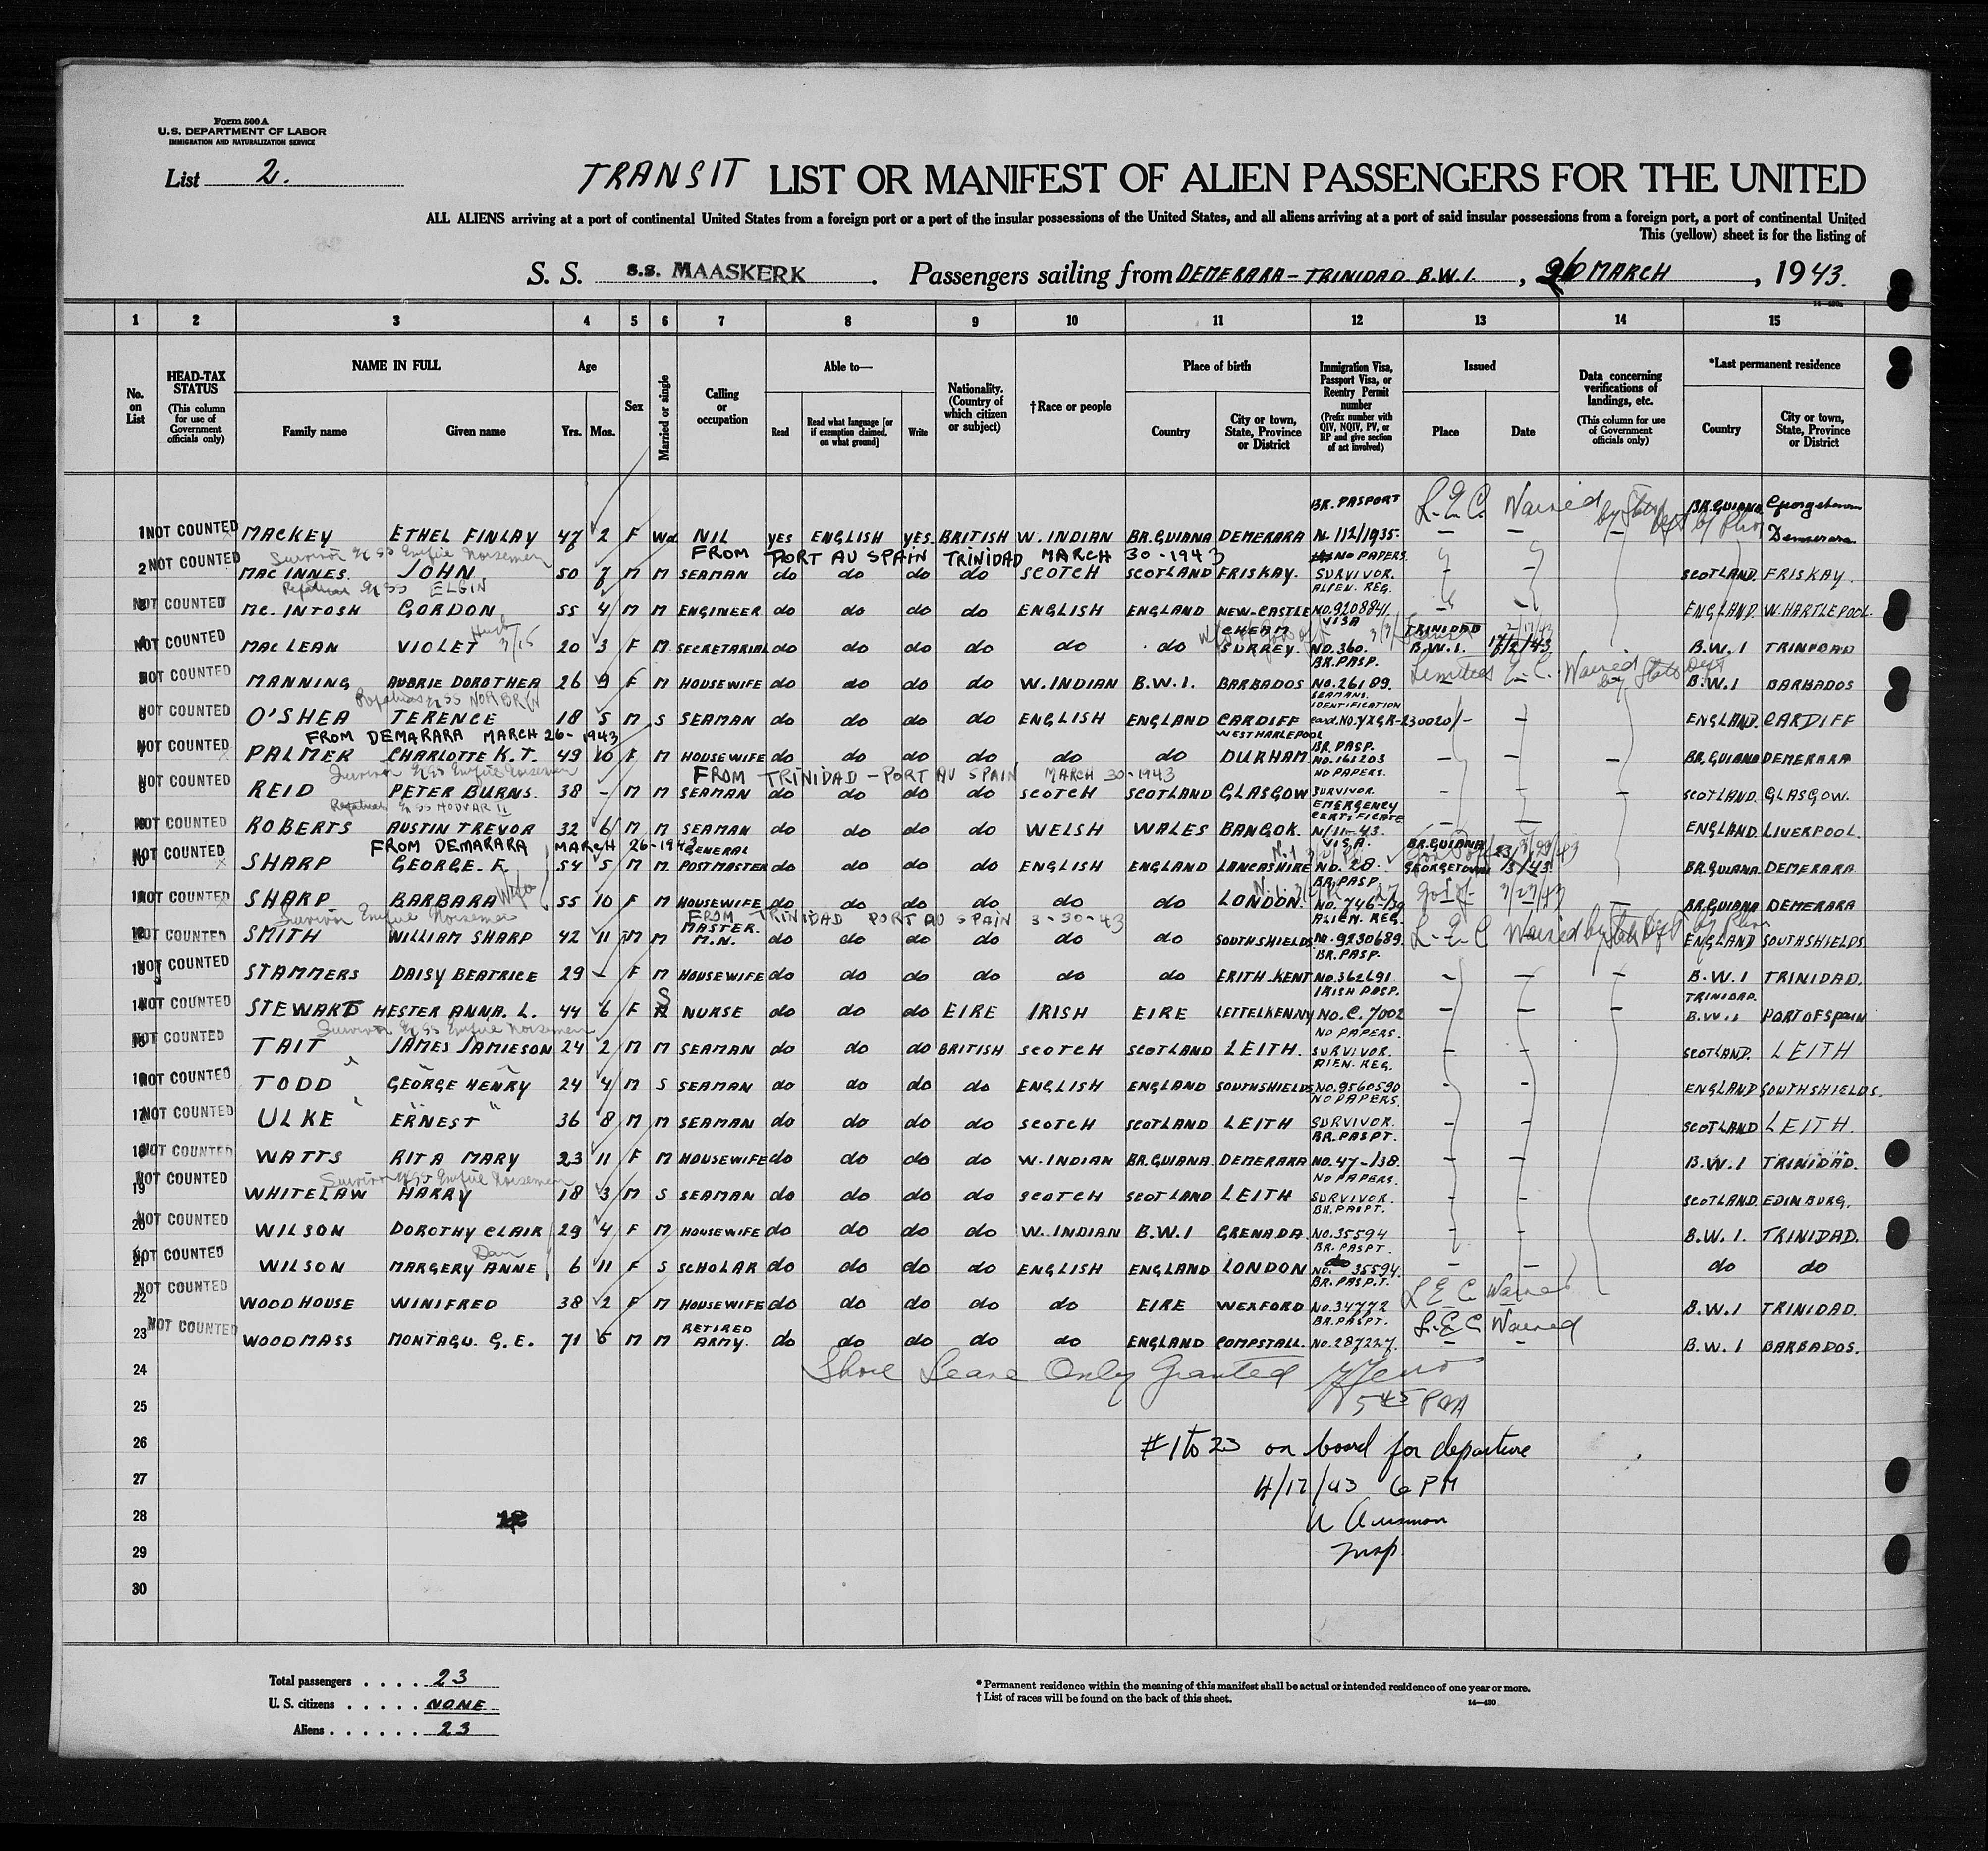 Form 500 A
U.S. DEPARTMENT OF LABOR
IMMIGRATION AND NATURALIZATION SERVICE
List 2.
TRANSIT LIST OR MANIFEST OF ALIEN PASSENGERS FOR THE UNITED
ALL ALIENS arriving at a port of continental United States from a foreign port or a port of the insular possessions of the United States, and all aliens arriving at a port of said insular possessions from a foreign port, a port of continental United
This (yellow) sheet is for the listing of
S. S. S.S. MAASKERK. Passengers sailing from DEMERARA - TRINIDAD. B.W.I., MARCH, 1943.
1 2 3 4 5 6 7 8 9 10 11 12 13 14 15
No. on List
HEAD-TAX STATUS (This column for use of Government officials only)
NAME IN FULL
Family name
Given name
Age
Yrs. Mos.
Sex
Married or single
Calling or occupation
Able to—
Read
Read what language [or if exemption claimed, on what ground]
Write
Nationality. (Country of which citizen or subject)
†Race or people
Place of birth
Country
City or town, State, Province or District
Immigration Visa, Passport Visa, or Reentry Permit number (Prefix number with QIV, NQIV, PV, or RP and give section of act involved)
Issued
Place
Date
Data concerning verifications of landings, etc. (This column for use of Government officials only)
*Last permanent residence
Country
City or town, State, Province or District
BR. PASPORT L.E.C. Waived by State Dept BR. GUIANA Georgetown
1 NOT COUNTED MACKEY ETHEL FINLAY 47 2 F Wd NIL yes ENGLISH yes BRITISH W. INDIAN BR. GUIANA DEMERARA N. 112/1935. — — Demerara
Survivor of SS Empire Norseman FROM PORT AU SPAIN TRINIDAD MARCH 30-1943 NO PAPERS
2 NOT COUNTED MAC INNES. JOHN 50 7 M M SEAMAN do do do do SCOTCH SCOTLAND FRISKAY. SURVIVOR. — — SCOTLAND. FRISKAY.
SS ELGIN ALIEN. REG.
3 NOT COUNTED MC. INTOSH GORDON 55 4 M M ENGINEER do do do do ENGLISH ENGLAND NEW-CASTLE NO. 9208841. — — ENGLAND. W. HARTLEPOOL.
3/15 CHEAM VISA TRINIDAD
4 NOT COUNTED MAC LEAN VIOLET 20 3 F M SECRETARIAL do do do do do do SURREY. NO. 360. B.W.I. 17/2/43 B.W.I TRINIDAD
BR. PASP.
5 NOT COUNTED MANNING AUBRIE DOROTHEA 26 9 F M HOUSEWIFE do do do do W. INDIAN B.W.I. BARBADOS NO. 26189. L.E.C. Waived by State Dept B.W.I BARBADOS
SEAMANS. IDENTIFICATION
6 NOT COUNTED O'SHEA TERENCE 18 5 M S SEAMAN do do do do ENGLISH ENGLAND CARDIFF card. NO. YXGR-230020 — — ENGLAND. CARDIFF
FROM DEMARARA MARCH 26-1943 WEST HARLEPOOL BR. PASP.
7 NOT COUNTED PALMER CHARLOTTE K.T. 49 10 F M HOUSEWIFE do do do do do do DURHAM. NO. 161203 — — — BR. GUIANA DEMERARA
Survivor of SS Empire Norseman FROM TRINIDAD - PORT AU SPAIN MARCH 30-1943 NO PAPERS.
8 NOT COUNTED REID PETER BURNS. 38 - M M SEAMAN do do do do SCOTCH SCOTLAND GLASGOW SURVIVOR. — — — SCOTLAND. GLASGOW.
EMERGENCY CERTIFICATE
9 NOT COUNTED ROBERTS AUSTIN TREVOR 32 6 M M SEAMAN do do do do WELSH WALES BANGOR. N/11-43. — — ENGLAND. LIVERPOOL.
FROM DEMARARA MARCH 26-1943 GENERAL VISA. BR. GUIANA
10 NOT COUNTED SHARP GEORGE. F. 54 5 M M. POSTMASTER do do do do ENGLISH ENGLAND LANCASHIRE NO. 28. GEORGETOWN BR. GUIANA. DEMERARA.
BR. PASP
11 NOT COUNTED SHARP BARBARA Wife 55 10 F M HOUSEWIFE do do do do do do LONDON. NO. 746-/39 3/23/43 — BR. GUIANA DEMERARA
Survivor Empire Norseman FROM TRINIDAD PORT AU SPAIN 3-30-43 ALIEN. REG.
12 NOT COUNTED SMITH WILLIAM SHARP 42 11 M M MASTER. M.N. do do do do do do SOUTHSHIELDS. N. 9230689. L.E.C Waived by State Dept ENGLAND SOUTHSHIELDS.
BR. PASP.
13 NOT COUNTED STAMMERS DAISY BEATRICE 29 - F M HOUSEWIFE do do do do do do ERITH-KENT NO. 362691. — — — B.W.I TRINIDAD.
IRISH PASP. TRINIDAD.
14 NOT COUNTED STEWARD HESTER ANNA. L. 44 6 F S NURSE do do do EIRE IRISH EIRE LETTELKENNY NO. C. 7002 — — — B.W.I PORT OF SPAIN
Survivor of SS Empire Norseman NO PAPERS.
15 NOT COUNTED TAIT JAMES JAMIESON 24 2 M M SEAMAN do do do BRITISH SCOTCH SCOTLAND LEITH. SURVIVOR. — — SCOTLAND. LEITH
ALIEN. REG.
16 NOT COUNTED TODD GEORGE HENRY 24 4 M S SEAMAN do do do do ENGLISH ENGLAND SOUTHSHIELDS NO. 9560590 — — ENGLAND SOUTHSHIELDS.
NO PAPERS.
17 NOT COUNTED ULKE ERNEST 36 8 M M SEAMAN do do do do SCOTCH SCOTLAND LEITH SURVIVOR. — — SCOTLAND LEITH.
BR. PASPT.
18 NOT COUNTED WATTS RITA MARY 23 11 F M HOUSEWIFE do do do do W. INDIAN BR. GUIANA. DEMERARA NO. 47-138. — — B.W.I TRINIDAD.
Survivor of SS Empire Norseman NO PAPERS.
19 NOT COUNTED WHITELAW HARRY 18 3 M S SEAMAN do do do do SCOTCH SCOTLAND LEITH SURVIVOR. — — SCOTLAND. EDINBURG.
BR. PASPT.
20 NOT COUNTED WILSON DOROTHY CLAIR 29 4 F M HOUSEWIFE do do do do W. INDIAN B.W.I GRENADA. NO. 35594 — — B.W.I. TRINIDAD.
BR. PASPT.
21 NOT COUNTED WILSON MARGERY ANNE 6 11 F S SCHOLAR do do do do ENGLISH ENGLAND LONDON NO. 35594. — — do do
BR. PASP.T.
22 NOT COUNTED WOODHOUSE WINIFRED 38 2 F M HOUSEWIFE do do do do do EIRE WEXFORD NO. 34772 L E C Waived B.W.I TRINIDAD.
RETIRED BR. PASPT.
23 NOT COUNTED WOODMASS MONTAGU. G.E. 71 5 M M ARMY. do do do do do ENGLAND COMPSTALL. NO. 287227. L.E.C. Waived B.W.I BARBADOS.
24 Shore Leave Only Granted
25 5 45 PM
26 #1 to 23 on board for departure
27 4/12/43 6 PM
28
29 Insp.
30
Total passengers . . . . 23
U. S. citizens . . . . . NONE
Aliens . . . . . . 23
* Permanent residence within the meaning of this manifest shall be actual or intended residence of one year or more.
† List of races will be found on the back of this sheet.
14—430